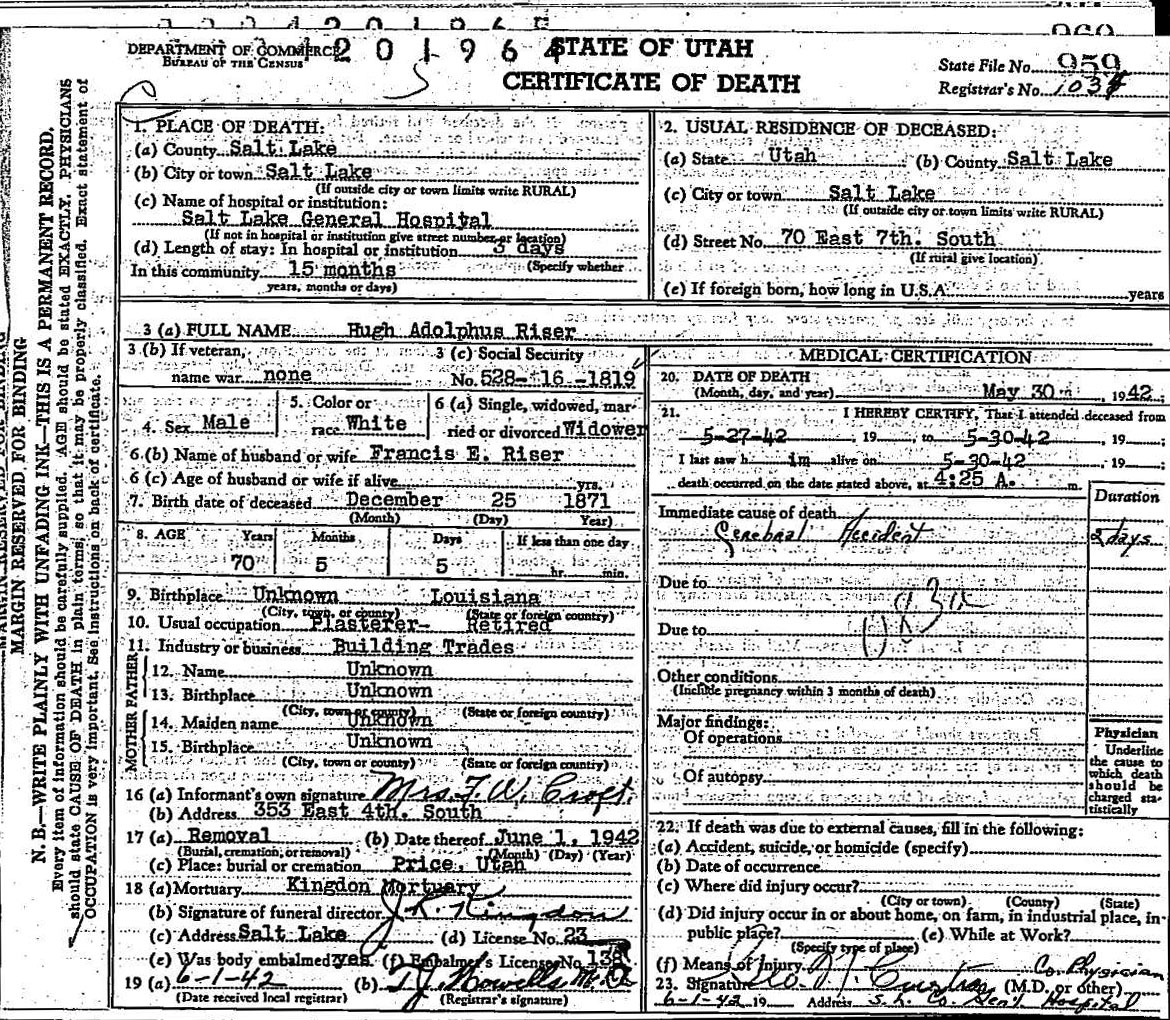 DEPARTMENT OF COMMERCE
BUREAU OF THE CENSUS
2 0 1 9 6 4
STATE OF UTAH
CERTIFICATE OF DEATH
960
State File No. 959
Registrar's No. 1034
MARGIN RESERVED FOR BINDING
N. B.—WRITE PLAINLY WITH UNFADING INK—THIS IS A PERMANENT RECORD.
Every item of information should be carefully supplied. AGE should be stated EXACTLY. PHYSICIANS
should state CAUSE OF DEATH in plain terms, so that it may be properly classified. Exact statement of
OCCUPATION is very important. See instructions on back of certificate.
1. PLACE OF DEATH:
(a) County Salt Lake
(b) City or town Salt Lake
(If outside city or town limits write RURAL)
(c) Name of hospital or institution:
Salt Lake General Hospital
(If not in hospital or institution give street number or location)
(d) Length of stay: In hospital or institution 3 days
(Specify whether
In this community 15 months
years, months or days)
2. USUAL RESIDENCE OF DECEASED:
(a) State Utah (b) County Salt Lake
(c) City or town Salt Lake
(If outside city or town limits write RURAL)
(d) Street No. 70 East 7th. South
(If rural give location)
(e) If foreign born, how long in U.S.A. years
3 (a) FULL NAME Hugh Adolphus Riser
3 (b) If veteran, 3 (c) Social Security
name war none No. 528-16-1819
4. Sex Male 5. Color or race White 6 (a) Single, widowed, married or divorced Widower
6 (b) Name of husband or wife Francis E. Riser
6 (c) Age of husband or wife if alive yrs.
7. Birth date of deceased December 25 1871
(Month) (Day) Year)
8. AGE Years Months Days If less than one day
70 5 5 hr. min.
9. Birthplace Unknown Louisiana
(City, town, or county) (State or foreign country)
10. Usual occupation Plasterer- Retired
11. Industry or business Building Trades
FATHER
12. Name Unknown
13. Birthplace Unknown
(City, town or county) (State or foreign country)
MOTHER
14. Maiden name Unknown
15. Birthplace Unknown
(City, town or county) (State or foreign country)
16 (a) Informant's own signature Mrs. F. W. Croft.
(b) Address 353 East 4th. South
17 (a) Removal (b) Date thereof June 1, 1942
(Burial, cremation, or removal) (Month) (Day) (Year)
(c) Place: burial or cremation Price, Utah
18 (a) Mortuary Kingdon Mortuary
(b) Signature of funeral director J. K. Kingdon
(c) Address Salt Lake (d) License No. 23
(e) Was body embalmed yes (f) Embalmer's License No. 138
19 (a) 6-1-42 (b) T. J. Howells
(Date received local registrar) (Registrar's signature)
MEDICAL CERTIFICATION
20. DATE OF DEATH
(Month, day, and year) May 30 , 1942;
21. I HEREBY CERTIFY, That I attended deceased from
5-27-42 , 19 , to 5-30-42 , 19 ;
I last saw h im alive on 5-30-42 , 19 ;
death occurred on the date stated above, at 4:25 A. m.
Duration
Immediate cause of death
Cerebral Accident 2 days
Due to
Due to
Other conditions
(Include pregnancy within 3 months of death)
Major findings:
Of operations
Of autopsy
Physician
Underline
the cause to
which death
should be
charged sta-
tistically
22. If death was due to external causes, fill in the following:
(a) Accident, suicide, or homicide (specify)
(b) Date of occurrence
(c) Where did injury occur?
(City or town) (County) (State)
(d) Did injury occur in or about home, on farm, in industrial place, in
public place? (e) While at Work?
(Specify type of place)
(f) Means of Injury Co. Physician
23. Signature (M.D. or other)
6-1-42 19 Address S. L. Co. Gen'l Hospital